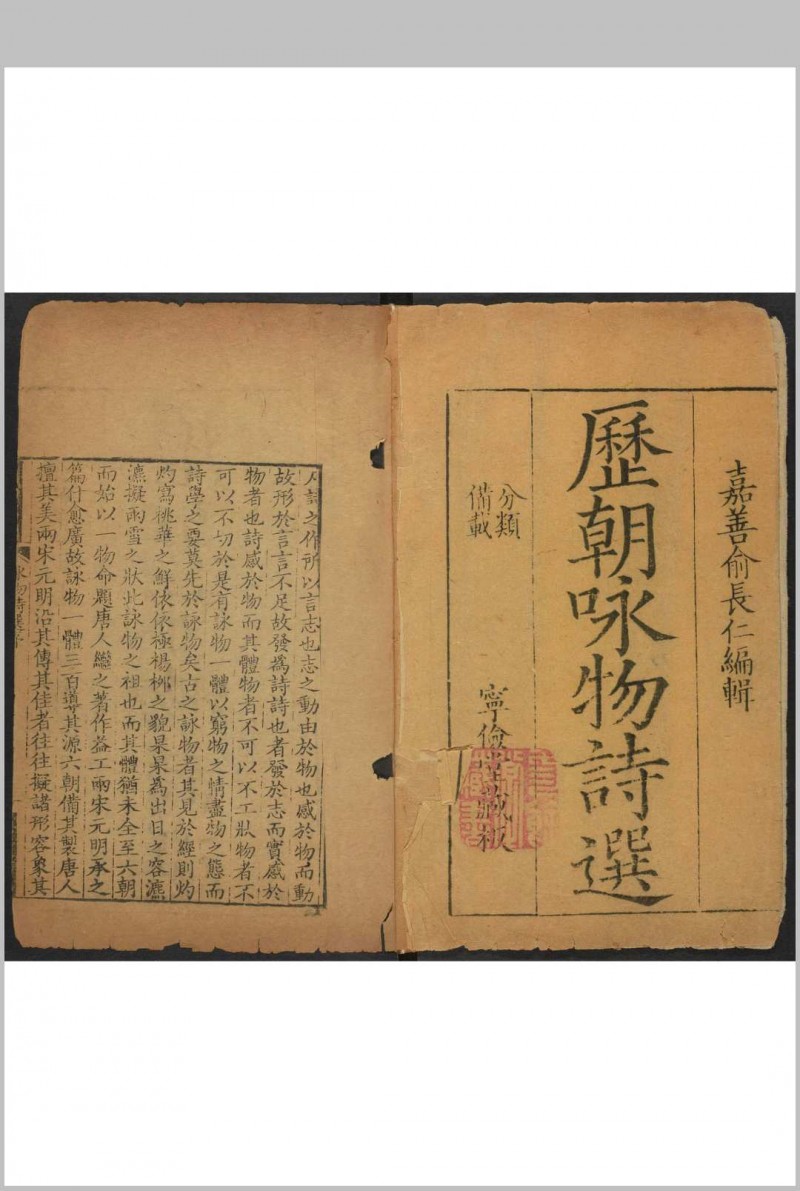 嘉善俞長仁編輯
歷朝咏物詩選
分類
備載
寧儉堂藏板
夫詩之作所以言志也志之動由於物也感於物而動
故形於言言不足故發為詩詩也者發於志而實感於
物者也詩感於物而其體物者不可以不工狀物者不
可以不切於是有詠物一體以窮物之情盡物之態而
詩學之要莫先於詠物矣古之詠物者其見於經則灼
灼寫桃華之鮮依依極楊柳之貌杲杲為出日之容瀌
瀌擬雨雪之狀此詠物之祖也而其體猶未全至六朝
而始以一物命題唐人繼之著作益工兩宋元明承之
篇什愈廣故詠物一體三百導其源六朝備其製唐人
擅其美兩宋元明沿其傳其佳者往往擬諸形容象其
詠物詩選序